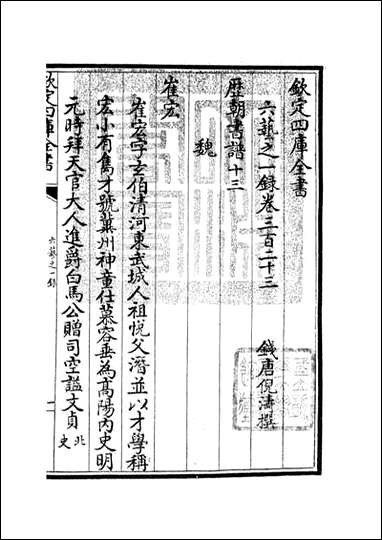 欽定四庫全書
六藝之一錄卷三百二十三
錢唐倪濤撰
歷朝書譜十三
魏
崔宏
崔宏字玄伯清河東武城人祖悅父潛並以才學稱
宏小有雋才號冀州神童仕慕容垂為高陽內史明
元時拜天官大人進爵白馬公贈司空諡文貞北史
欽定四庫全書
六藝之一錄